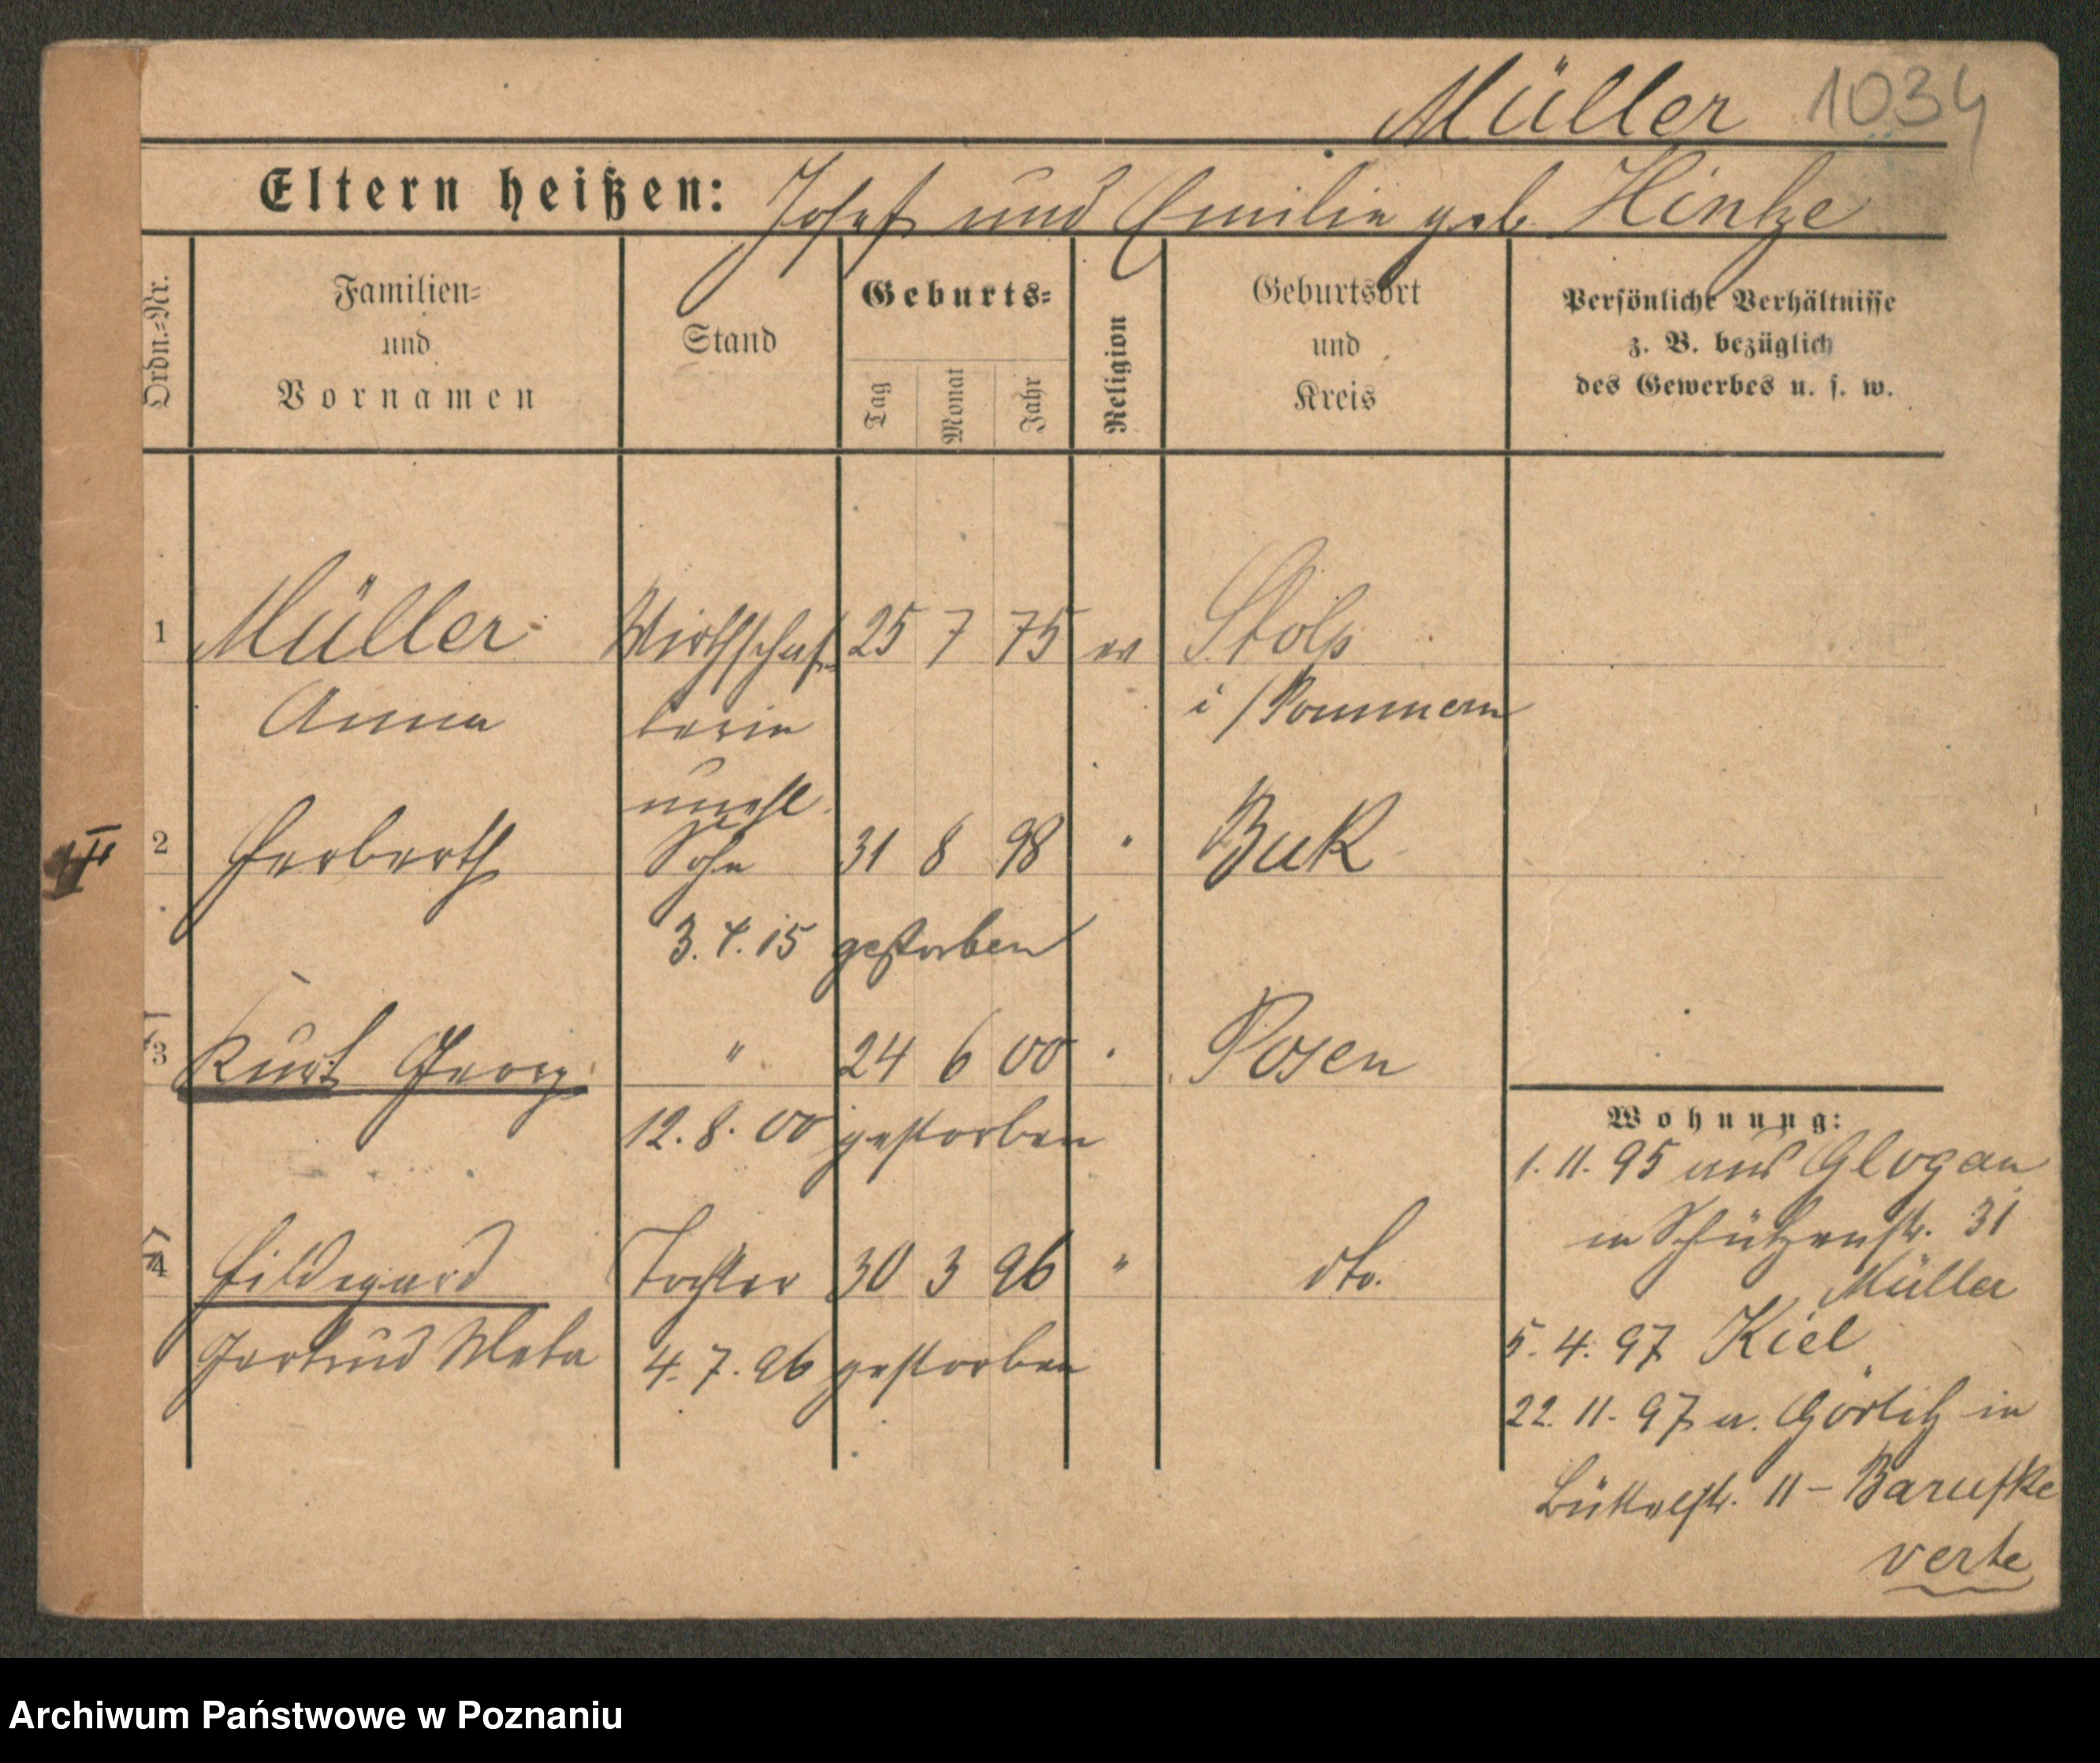 Müller 1034
Eltern heißen: Josef und Emilie geb. Hintze
Ordn.-Nr.
Familien-
und
Vornamen
Stand
Geburts-
Tag
Monat
Jahr
Religion
Geburtsort
und
Kreis
Persönliche Verhältnisse
z. B. bezüglich
des Gewerbes u. s. w.
1 Müller Wirthschaf- 25 7 75 ev Stolp
Anna terin i/Pommern
unehl.
2 Herberth Sohn 31 8 98 " Buk
3.4.15 gestorben
3 Kurt Georg " 24 6 00 " Posen
12.8.00 gestorben
4 Hildegard Tochter 30 3 96 " dto.
Gertrud Meta 4.7.96 gestorben
Wohnung:
1.11.95 aus Glogau
in Schützenstr. 31
Müller
5.4.97 Kiel
22.11.97 a. Görlitz in
Büttelstr. 11 – Barufke
verte
Archiwum Państwowe w Poznaniu